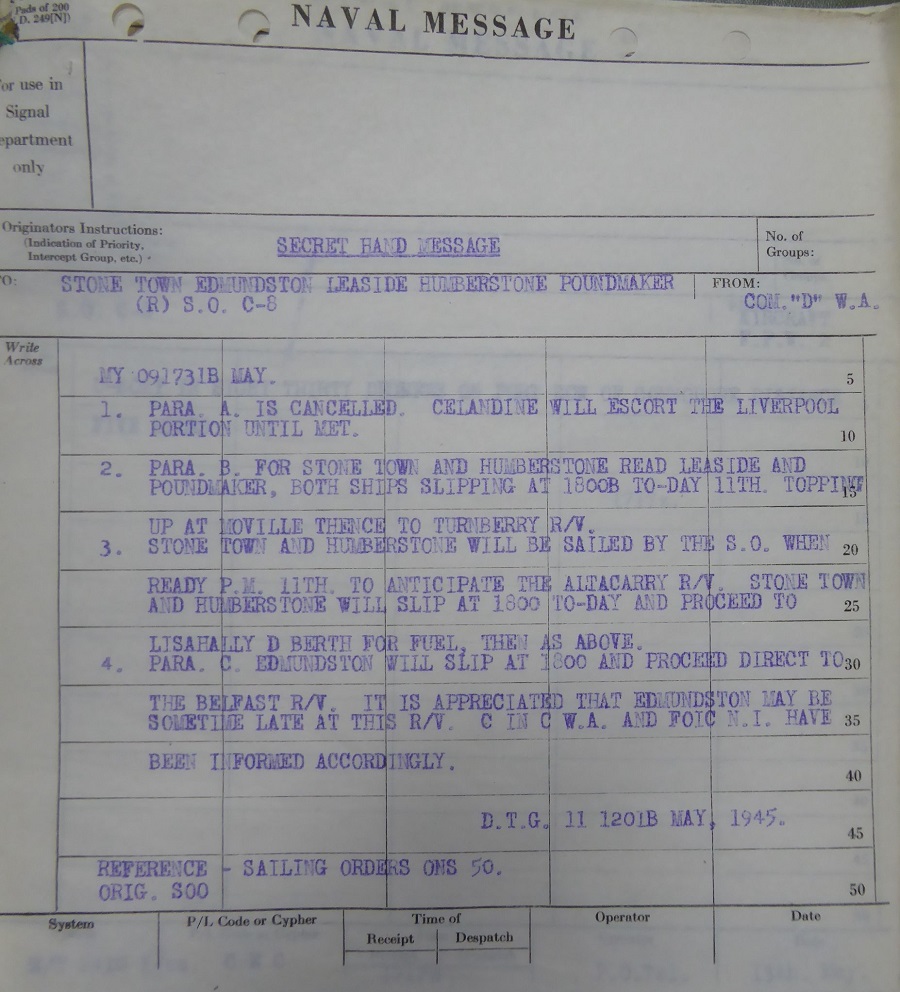 Pads of 200
D. 249[N])
NAVAL MESSAGE
or use in
Signal
epartment
only
Originators Instructions:
(Indication of Priority,
Intercept Group, etc.)
SECRET HAND MESSAGE
No. of
Groups:
O:
STONE TOWN EDMUNDSTON LEASIDE HUMBERSTONE POUNDMAKER
(R) S.O. C-8
FROM:
COM."D" W.A.
Write
Across
MY 091731B MAY.
5
1. PARA. A. IS CANCELLED. CELANDINE WILL ESCORT THE LIVERPOOL
PORTION UNTIL MET.
10
2. PARA. B. FOR STONE TOWN AND HUMBERSTONE READ LEASIDE AND
POUNDMAKER, BOTH SHIPS SLIPPING AT 1800B TO-DAY 11TH. TOPPING
15
UP AT MOVILLE THENCE TO TURNBERRY R/V.
3. STONE TOWN AND HUMBERSTONE WILL BE SAILED BY THE S.O. WHEN 20
READY P.M. 11TH. TO ANTICIPATE THE ALTACARRY R/V. STONE TOWN
AND HUMBERSTONE WILL SLIP AT 1800 TO-DAY AND PROCEED TO 25
LISAHALLY D BERTH FOR FUEL, THEN AS ABOVE.
4. PARA. C. EDMUNDSTON WILL SLIP AT 1800 AND PROCEED DIRECT TO 30
THE BELFAST R/V. IT IS APPRECIATED THAT EDMUNDSTON MAY BE
SOMETIME LATE AT THIS R/V. C IN C W.A. AND FOIC N.I. HAVE 35
BEEN INFORMED ACCORDINGLY.
40
D.T.G. 11 1201B MAY, 1945.
45
REFERENCE - SAILING ORDERS ONS 50.
ORIG. SOO
50
System
P/L Code or Cypher
Time of
Receipt
Despatch
Operator
Date